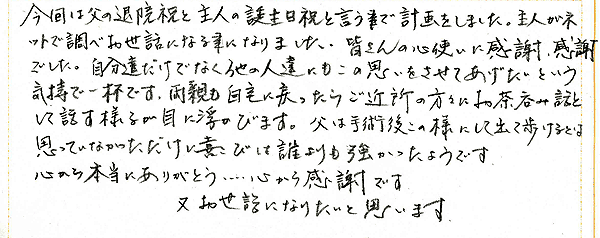 今回は父の退院祝と主人の誕生日祝と言う事で計画をしました。主人がネ
ットで調べお世話になる事になりました。皆さんの心使いに感謝、感謝
でした。自分達だけでなく他の人達にもこの思いをさせてあげたいという
気持で一杯です。両親も自宅に戻ったらご近所の方々にお茶呑み話と
して話す様子が目に浮かびます。父は手術後この様にして出て歩けるとは
思っていなかっただけに喜こびは誰よりも強かったようです
心から本当にありがとう……心から感謝です
又お世話になりたいと思います